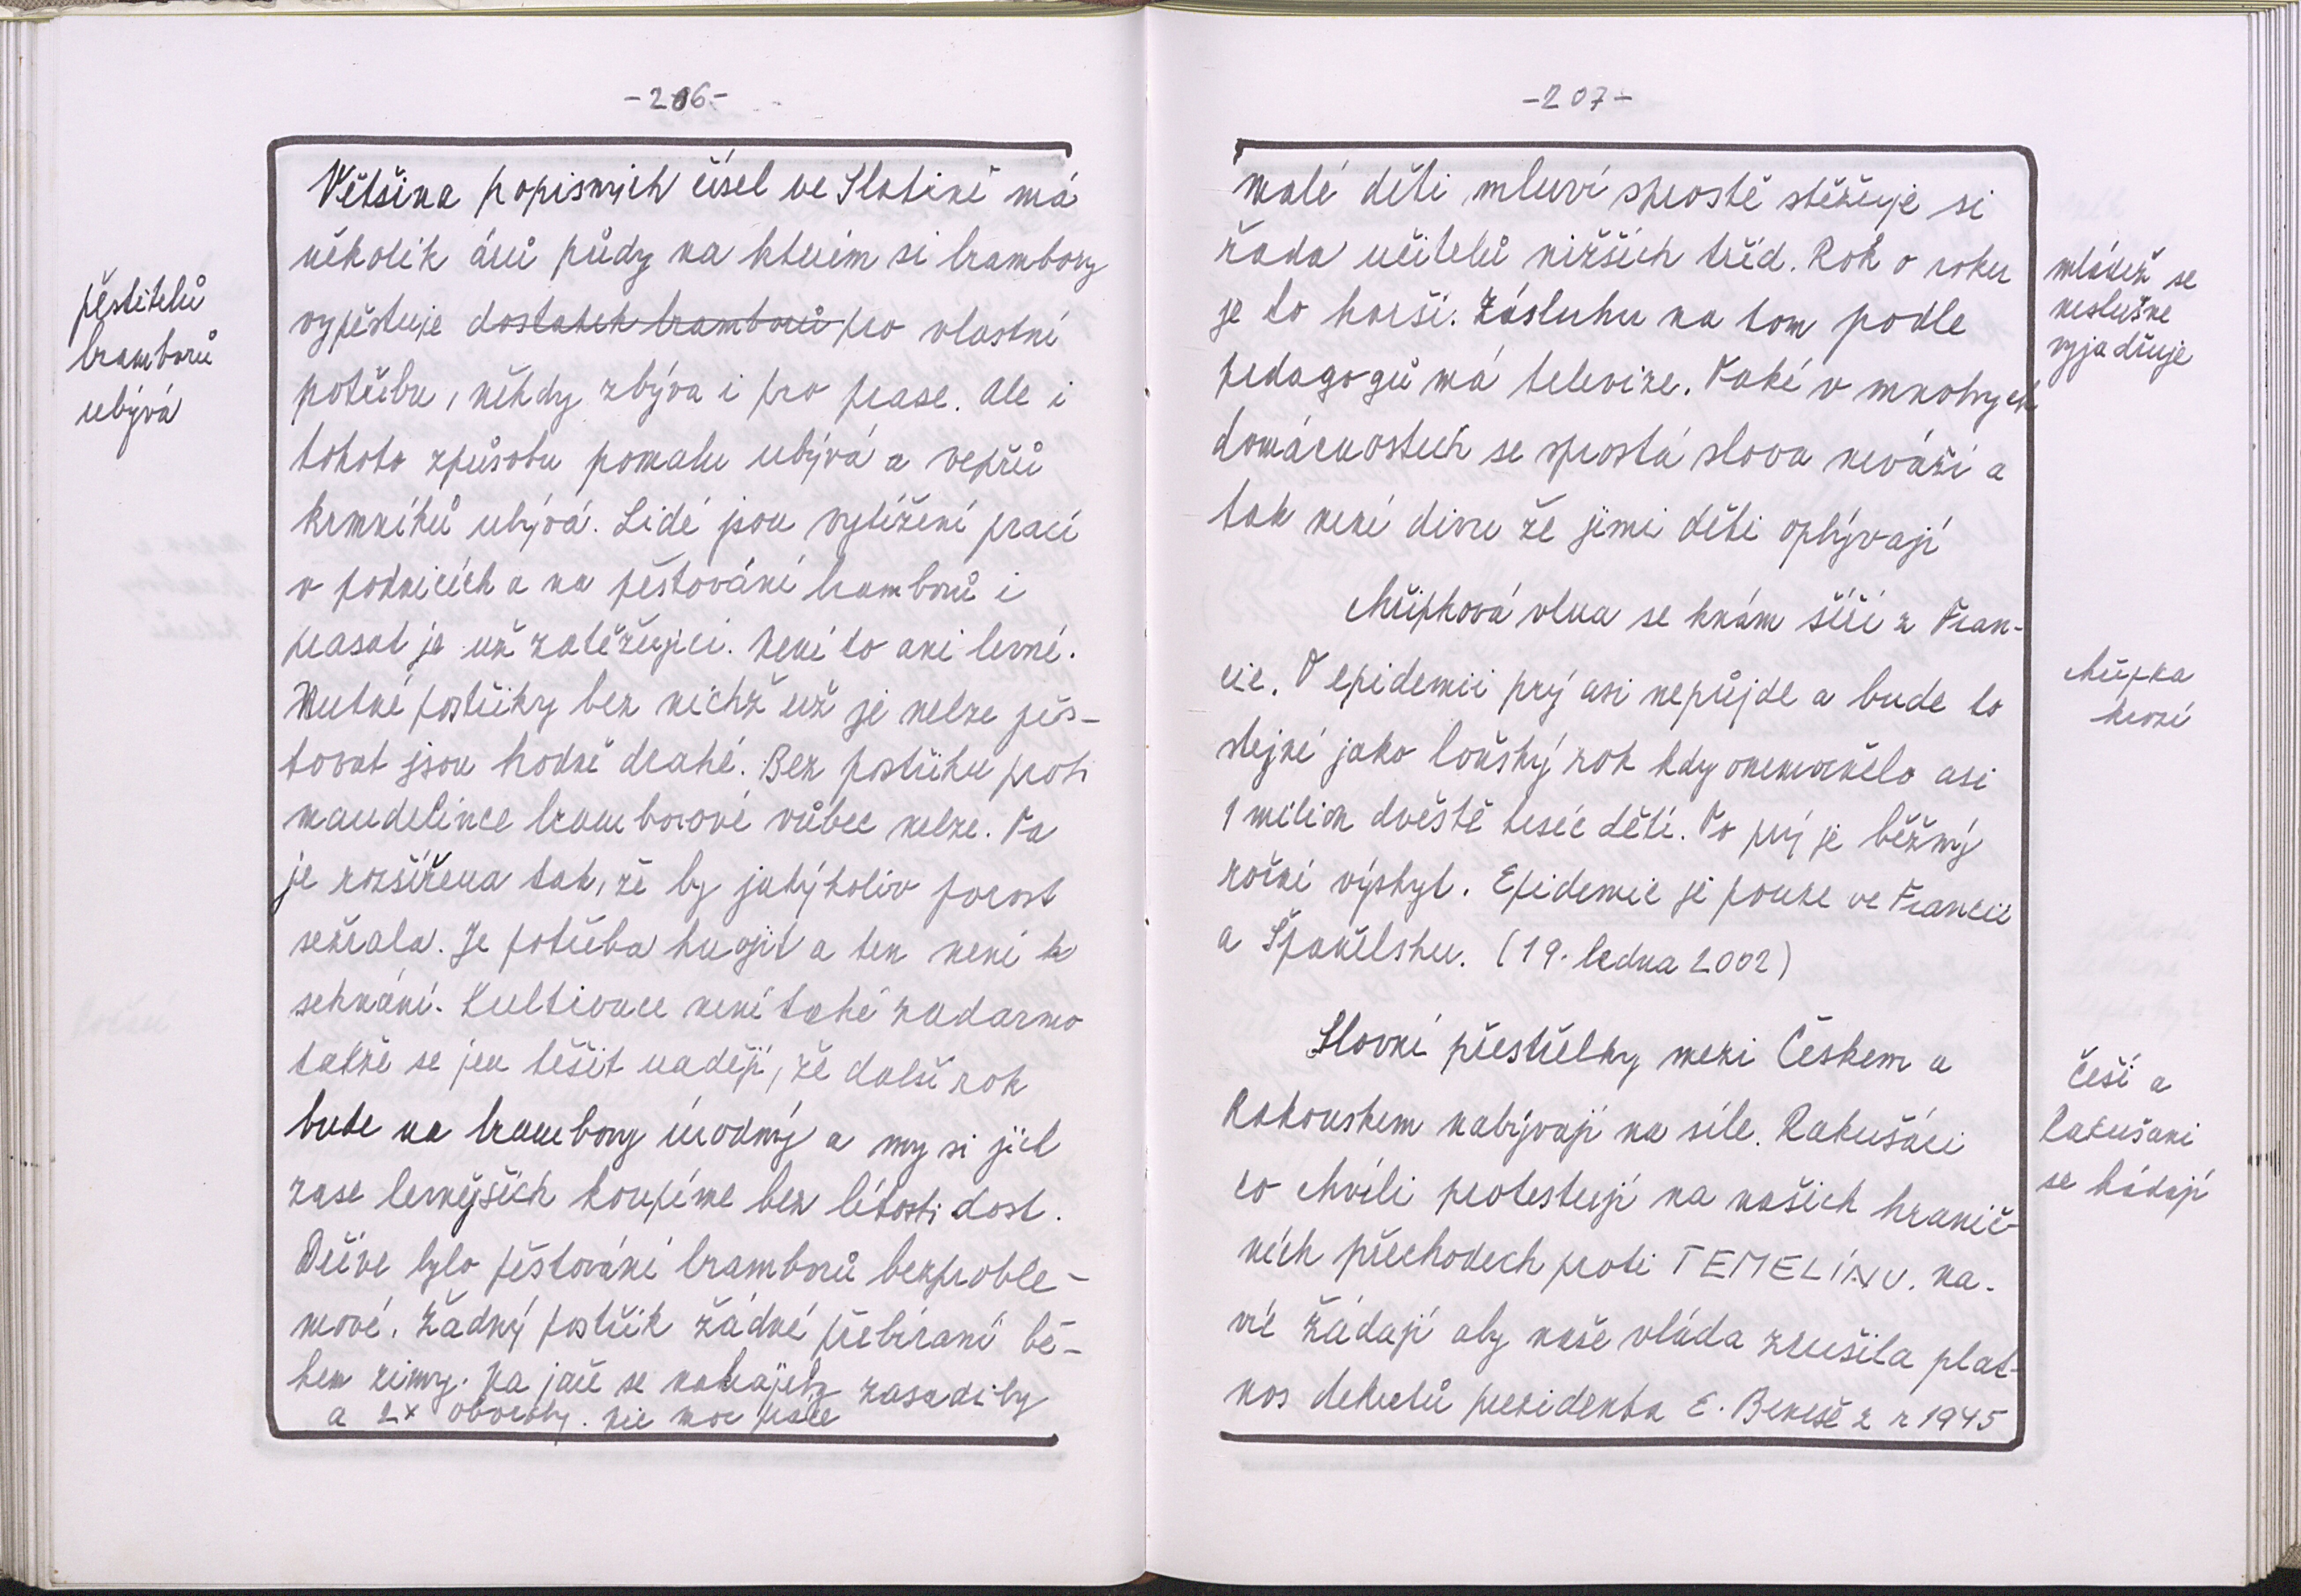 -206-
pěstitelů
bramborů
ubývá
Většina popisných čísel ve Slatině má
několik árů půdy na kterém si brambory
vypěstuje dostatek bramborů pro vlastní
potřebu, někdy zbývá i pro prase. Ale i
tohoto způsobu pomalu ubývá a vepřů
krmníků ubývá. Lidé jsou vytížení prací
v podnicích a na pěstování bramborů i
prasat je už zatěžující. Není to ani levné.
Nutné postřiky bez nichž už je nelze pěs-
tovat jsou hodně drahé. Bez postřiku proti
mandelince bramborové vůbec nelze. Ta
je rozšířena tak, že by jakýkoliv porost
sežrala. Je potřeba hnojit a ten není k
sehnání. Kultivace není také zadarmo
takže se jen těšit nadějí, že další rok
bude na brambory úrodný a my si jich
zase levnějších koupíme bez lítosti dost.
Dříve bylo pěstování bramborů bezproblé-
mové. Žádný postřik žádné přebíraní bě-
hem zimy. Na jaře se zasadily
a 2x oboraly. nic moc práce
-207-
malé děti mluví sprostě stěžuje si
řada učitelů nižších tříd. Rok o roku
je to horší. Zásluhu na tom podle
pedagogů má televize. Také v mnohých
domácnostech se sprostá slova neváží a
tak není divu že jimi děti oplývají
mládež se
neslušne
vyjadřuje
Chřipková vlna se knám šíří z Fran-
cie. O epidemii prý asi nepůjde a bude to
stejné jako loňský rok kdy onemocnělo asi
1 milion dvěstě tisíc dětí. To prý je běžný
roční výskyt. Epidemie je pouze ve Francii
a Španělsku. (19. ledna 2002)
chřipka
hrozí
Slovní přestřelky mezi Českem a
Rakouskem nabývají na síle. Rakušáci
co chvíli protestují na našich hranič-
ních přechodech proti TEMELÍNU. na-
víc žádají aby naše vláda zrušila plat-
nos dekretů prezidenta E. Beneše z r 1945
Češi a
Rakušani
se hádají